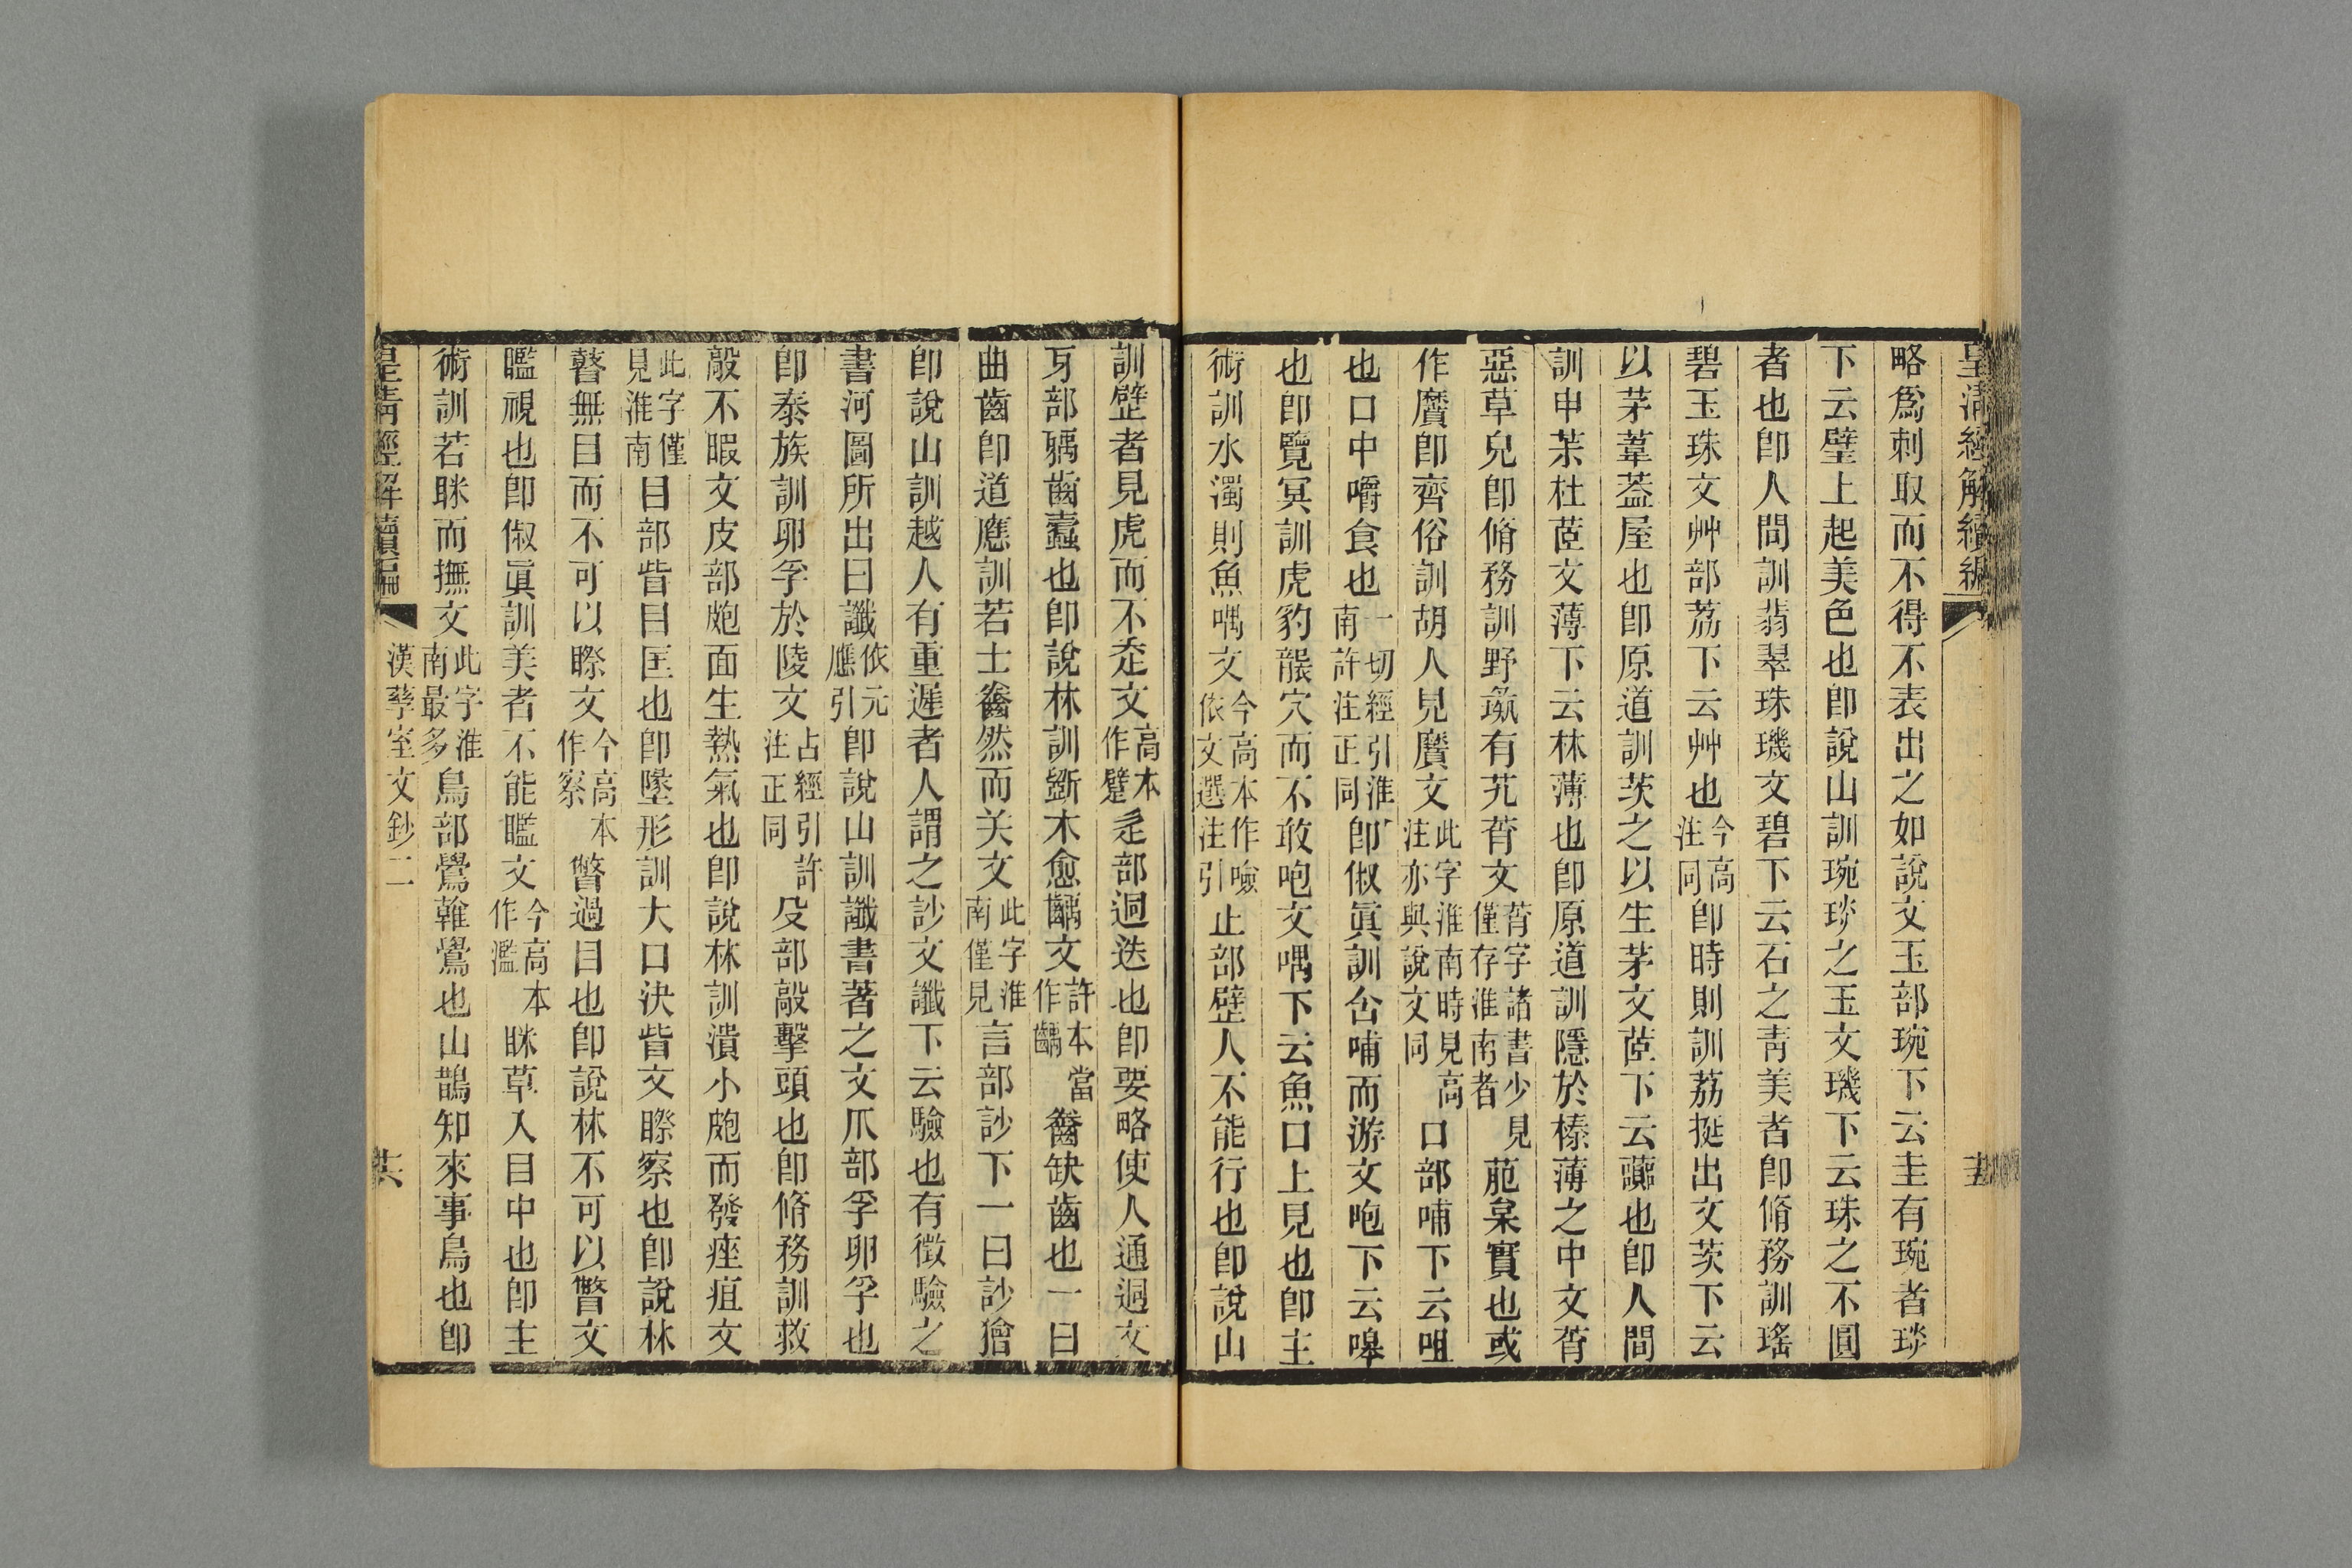 皇清經解續編
略爲刺取而不得不表出之如說文玉部琬下云圭有琬者琰
下云璧上起美色也卽說山訓琬琰之玉文璣下云珠之不圓
者也卽人閒訓翡翠珠璣文碧下云石之靑美者卽脩務訓瑤
碧玉珠文艸部荔下云艸也今高注同卽時則訓荔挺出文茨下云
以茅葦葢屋也卽原道訓茨之以生茅文苣下云虈也卽人間
訓申茱杜茝文薄下云林薄也卽原道訓隱於榛薄之中文䓯
惡草皃卽脩務訓野彘有艽䓯文䓯字諸書少見僅存淮南者萉枲實也或
作黂卽齊俗訓胡人見黂文此字淮南時見高注亦與說文同口部哺下云咀
也口中嚼食也一切經引淮南許注正同卽俶眞訓含哺而游文咆下云嗥
也卽覽冥訓虎豹襲穴而不敢咆文喁下云魚口上見也卽主
術訓水濁則魚喁文今高本作噞依文選注引止部躄人不能行也卽說山
訓躄者見虎而不走文高本作躄辵部迵迭也卽要略使人通迵文
牙部䶚齒蠹也卽說林訓斲木愈齲文許本當作齲齤缺齒也一曰
曲齒卽道應訓若士齤然而关文此字淮南僅見言部訬下一曰訬獪
卽說山訓越人有重遲者人謂之訬文讖下云驗也有徵驗之
書河圖所出曰讖依元應引卽說山訓讖書著之文爪部孚卵孚也
卽泰族訓卵孚於陵文占經引許注正同殳部毃擊頭也卽脩務訓救
毃不暇文皮部皰面生熱氣也卽說林訓潰小皰而發痤疽文
此字僅見淮南目部眥目匡也卽墬形訓大口決眥文瞭察也卽說林
瞽無目而不可以瞭文今高本作察瞥過目也卽說林不可以瞥文
䁠視也卽俶眞訓美者不能䁠文今高本作濫眯草入目中也卽主
術訓若眯而撫文此字淮南最多鳥部鷽雗鷽也山鵲知來事鳥也卽
皇清經解續編
漢孳室文鈔二